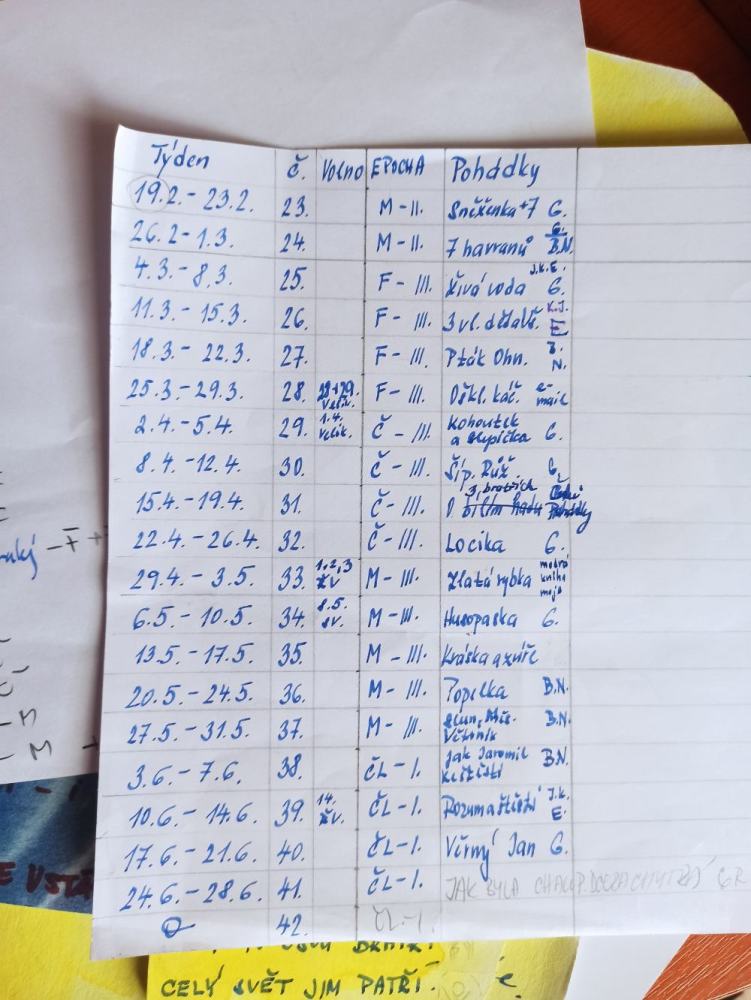 Týden č. Volno EPOCHA Pohádky
19.2. - 23.2. 23. M - II. Sněženka + 7 G.
26.2 - 1.3. 24. M - II. 7 havranů G. B.N.
4.3. - 8.3. 25. F - III. Živá voda J.K.E. G.
11.3. - 15.3. 26. F - III. 3 vl. děda vš. K.J. E
18.3. - 22.3. 27. F - III. Pták Ohn. N.
25.3. - 29.3. 28. 28+29. Velik. F - III. Oškl. káč. e-mail
2.4. - 5.4. 29. 1.4. Velik. Č - III. Kohoutek a slepička G.
8.4. - 12.4. 30. Č - III. Šíp. Růž. G.
15.4. - 19.4. 31. Č - III. O 3 bratřích bílém hadu České Pohádky
22.4. - 26.4. 32. Č - III. Locika G.
29.4. - 3.5. 33. 1.2.3 M - III. Zlatá rybka modrá kniha moje
6.5. - 10.5. 34. 8.5. sv. M - III. Husopaska G.
13.5. - 17.5. 35. M - III. Kráska a zvíře
20.5. - 24.5. 36. M - III. Popelka B.N.
27.5. - 31.5. 37. M - III. Slun, Měs. Větrník B.N.
3.6. - 7.6. 38. ČL - I. Jak Jaromil k štěstí B.N.
10.6. - 14.6. 39. 14. ČL - I. Rozum a štěstí J.K. E.
17.6. - 21.6. 40. ČL - I. Věrný Jan G.
24.6. - 28.6. 41. ČL - I. JAK BYLA
42. ČL - I.
CELÝ SVĚT JIM PATŘÍ.